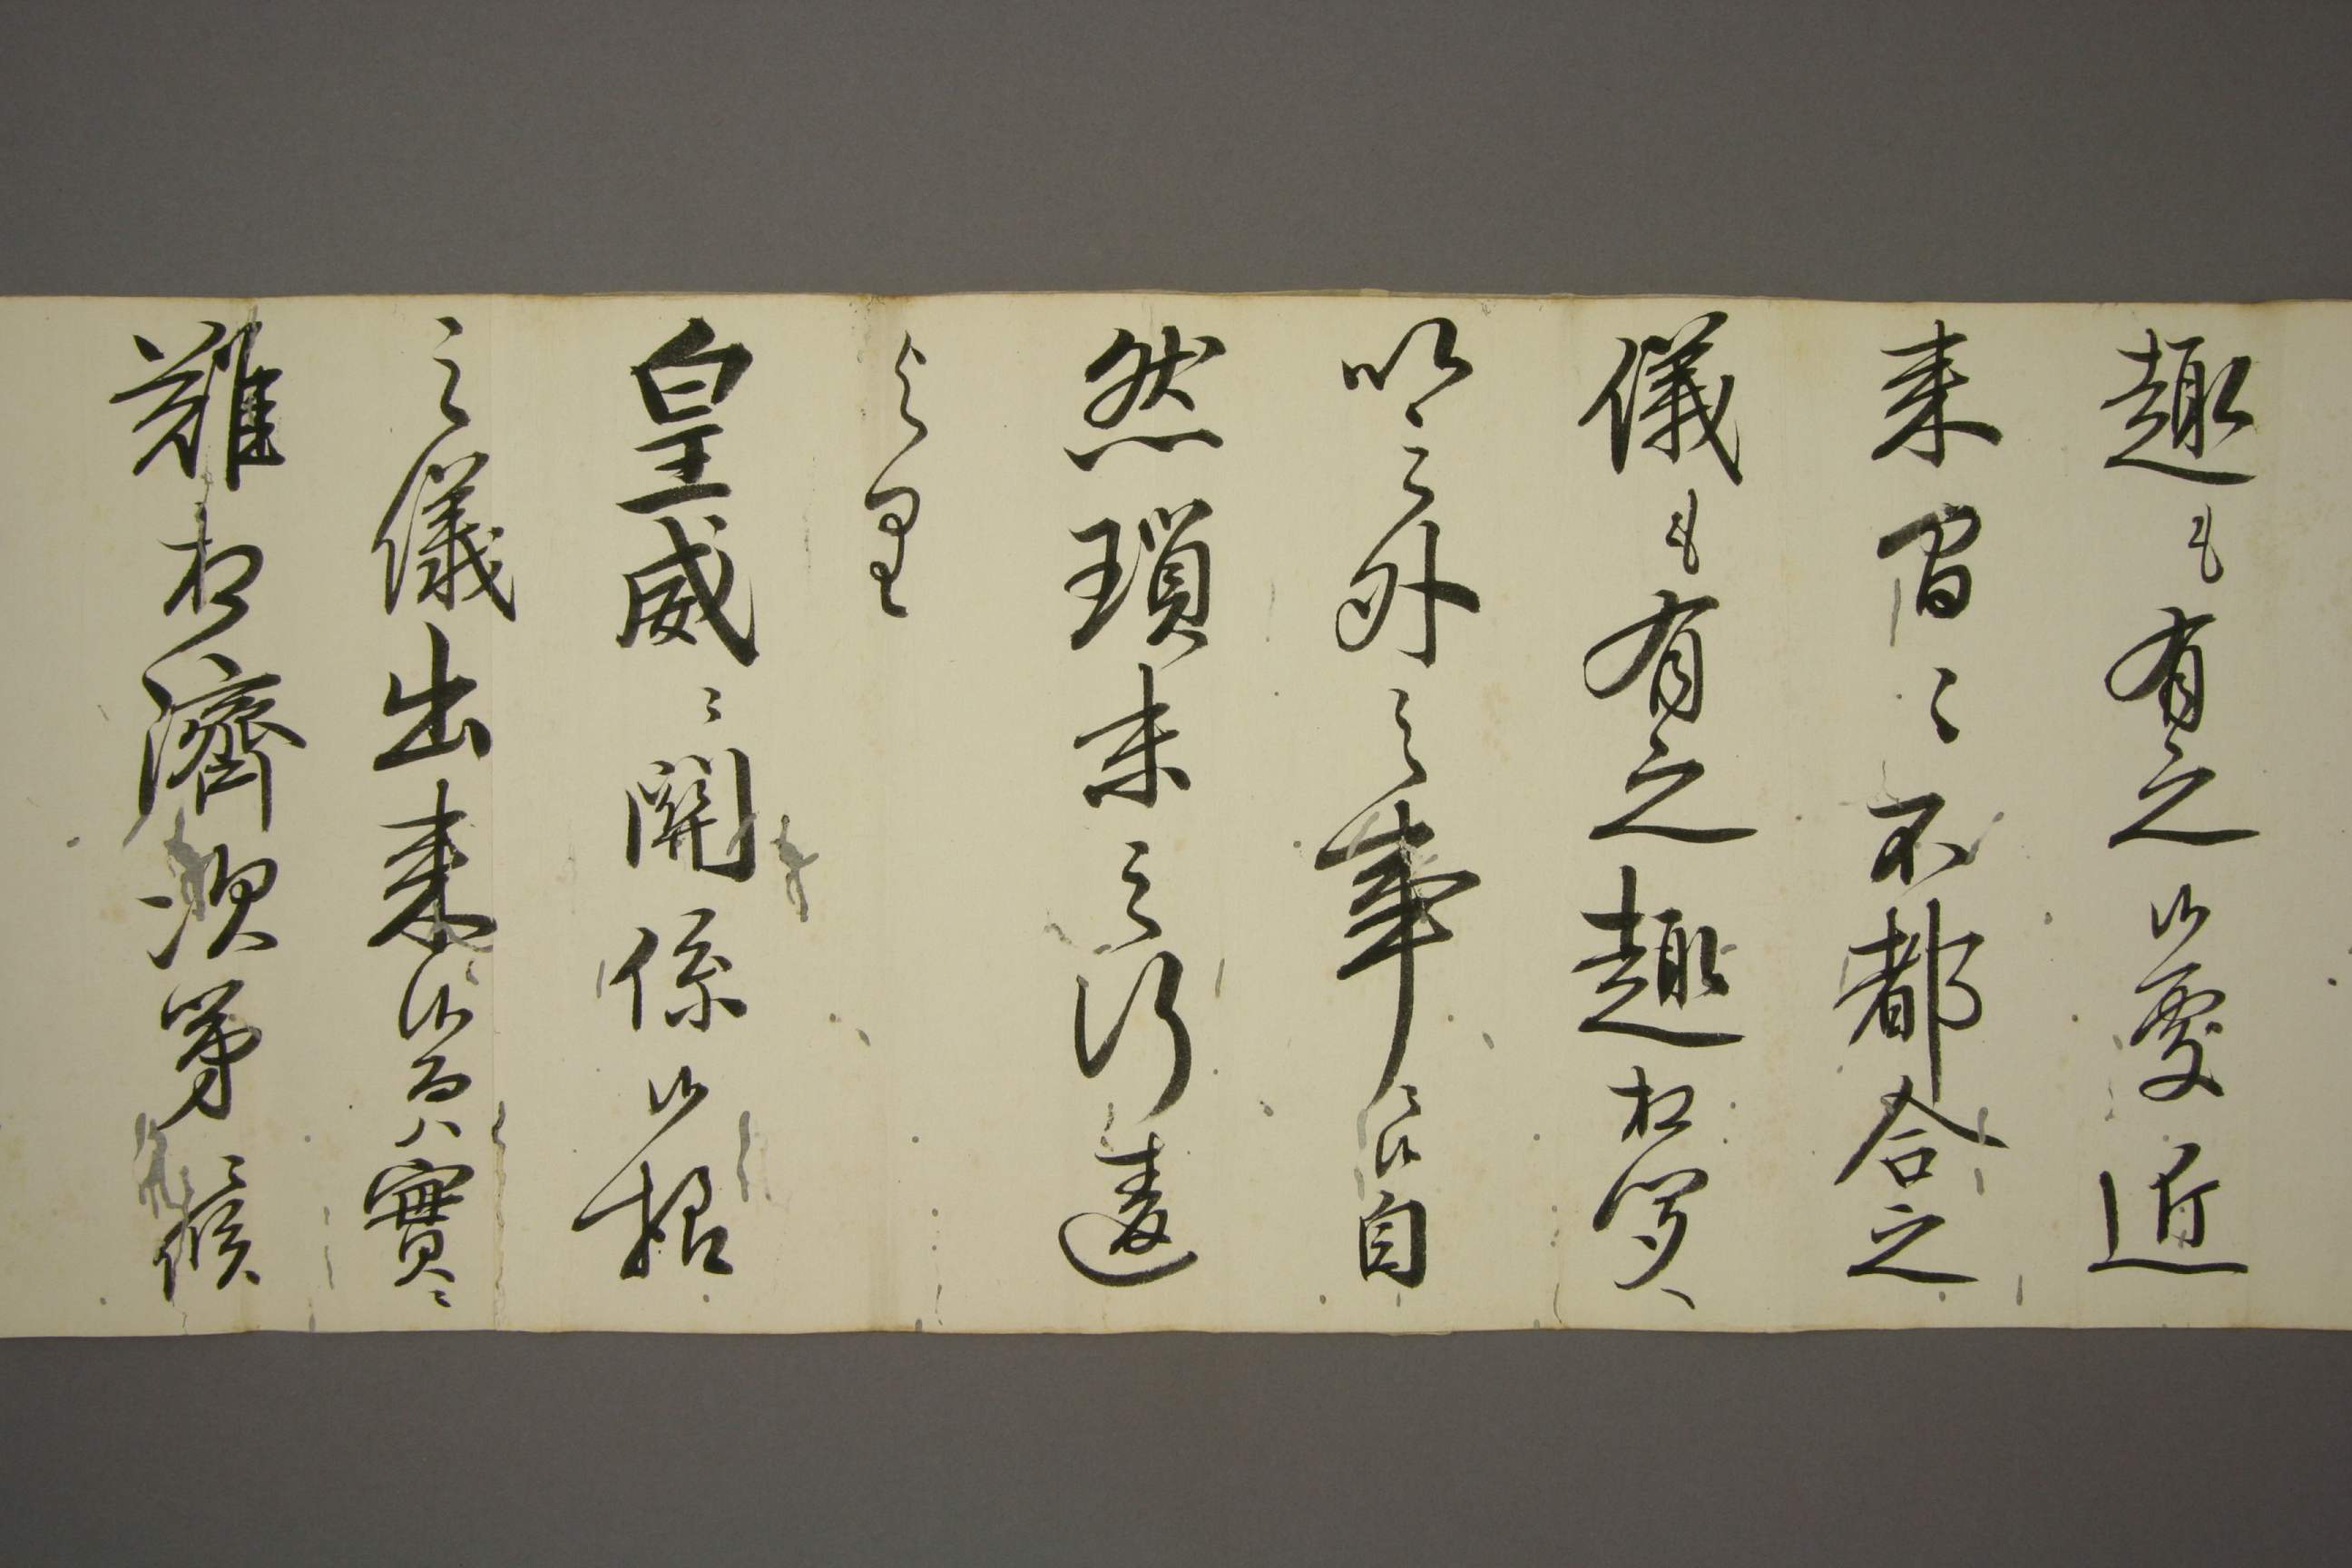 趣も有之候處近
来間々不都合之
儀も有之趣相聞へ
以之外之事ニ候自
然瑣末之行違
より
皇威ニ関係候様
之儀出来候而ハ實ニ
難相濟次第ニ候